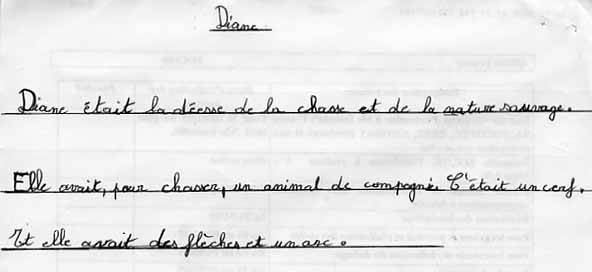 Diane
Diane était la déesse de la chasse et de la nature sauvage.
Elle avait, pour chasser, un animal de compagnie. C'était un cerf.
Et elle avait des flèches et un arc.